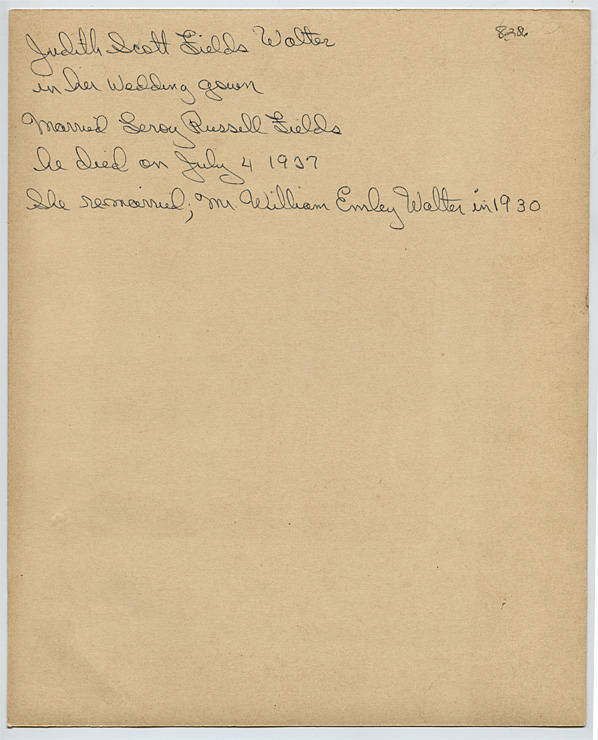 838
Judith Scott Fields Walter
in her Wedding gown
Married Leroy Russell Fields
he died on July 4 1937
She remarried; Mr. William Emley Walter in 1930